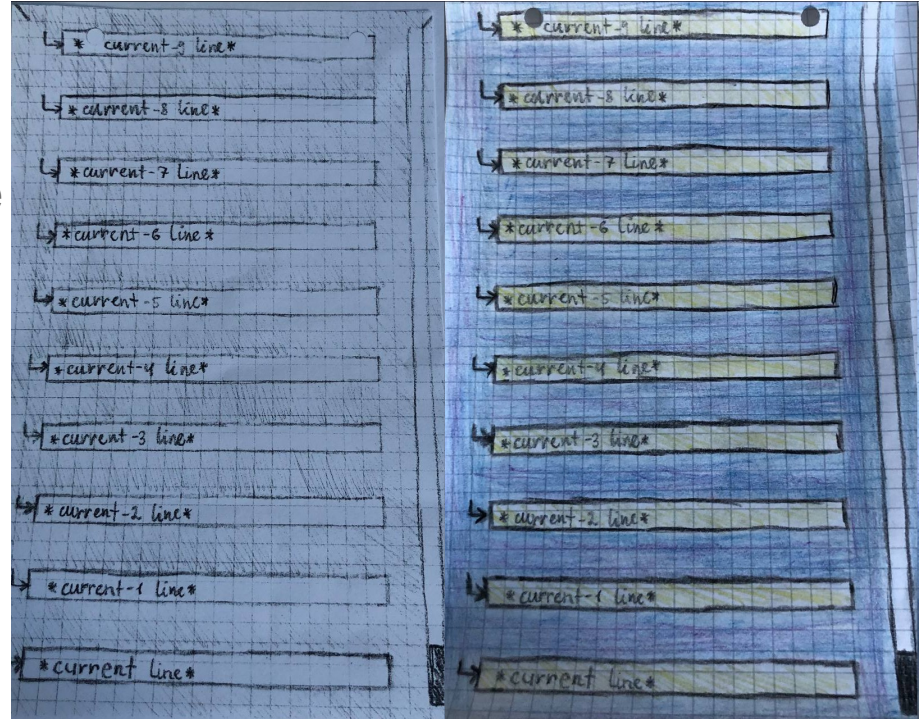 *current-9 line*
*current-8 line*
*current-7 line*
*current-6 line*
*current-5 line*
*current-4 line*
*current-3 line*
*current-2 line*
*current-1 line*
*current line*
*current-9 line*
*current-8 line*
*current-7 line*
*current-6 line*
*current-5 line*
*current-4 line*
*current-3 line*
*current-2 line*
*current-1 line*
*current line*